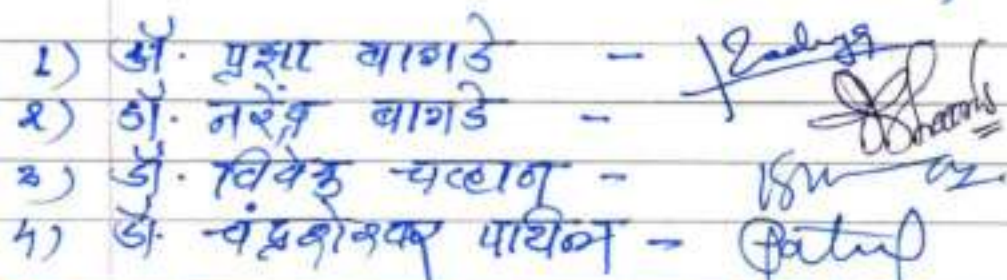 1) डॉ. प्रज्ञा बागडे -
२) डॉ. नरेंद्र बागडे -
३) डॉ. विवेक चव्हाण -
४) डॉ. चंद्रशेखर पाटील - Patil